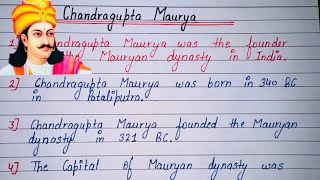 Chandragupta Maurya
1] Chandragupta Maurya was the founder
the Mauryan dynasty in India.
2] Chandragupta Maurya was born in 340 BC
in Pataliputra.
3] Chandragupta Maurya founded the Mauryan
dynasty in 321 BC.
4] The Capital of Mauryan dynasty was